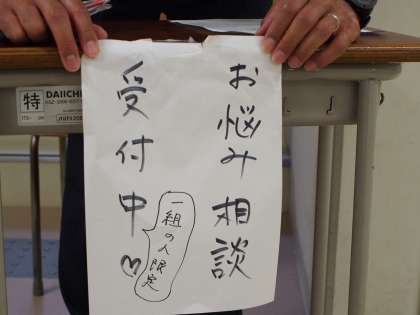 お悩み相談
受付中♡
一組の人限定
特
DAIICHI